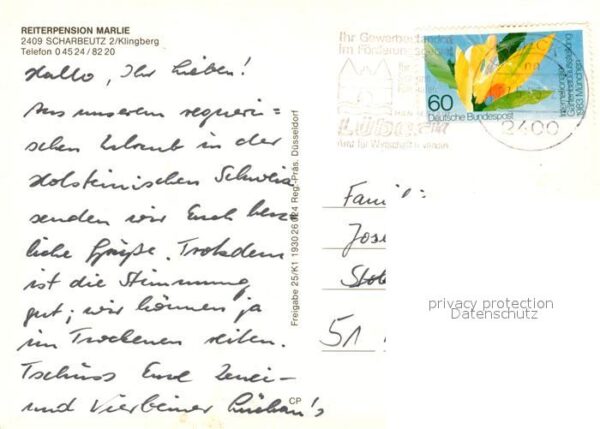 REITERPENSION MARLIE
2409 SCHARBEUTZ 2/Klingberg
Telefon 0 45 24 / 82 20
Hallo, Ihr Lieben!
Aus unserem regneri=
schen Urlaub in der
Holsteinischen Schweiz
senden wir Euch herz
liche Grüße. Trotzdem
ist die Stimmung
gut; wir können ja
im Trockenen reiten.
Tschüss Eure Zwei-
und Vierbeiner
CP
Freigabe 25/K1 1930 26 Reg.-Präs. Düsseldorf
Ihr Gewerbestandort
im Förderungsgebiet
Lübeck
Amt für Wirtschaft
2400
60
Deutsche Bundespost
Internationale
Gartenbauausstellung
1983 München
Fami
Jose
51
privacy protection
Datenschutz